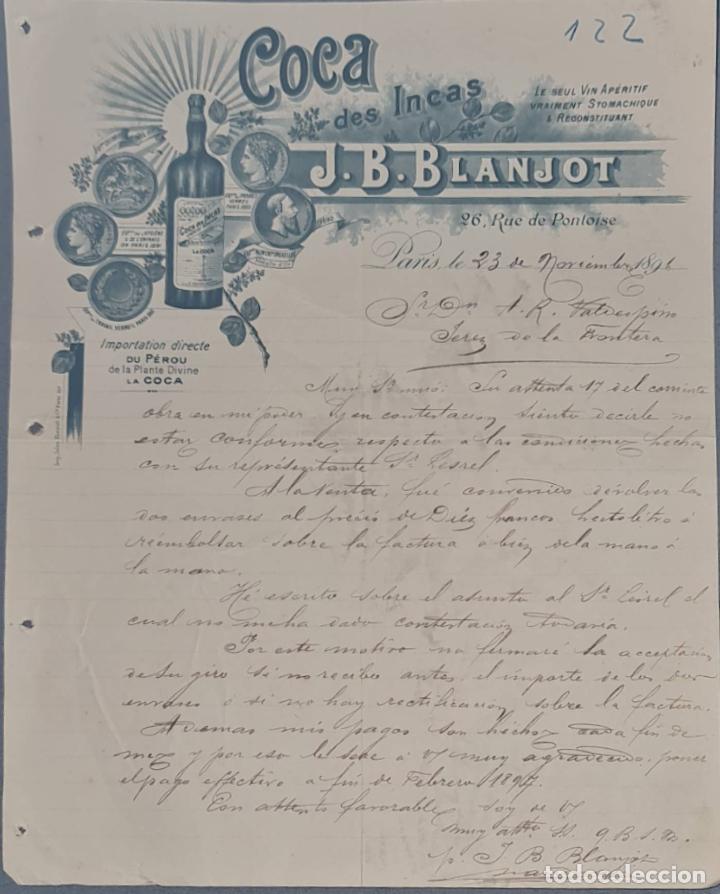 122
Coca
des Incas
LE SEUL VIN APÉRITIF
VRAIMENT STOMACHIQUE
& RECONSTITUANT
J. B. BLANJOT
26, Rue de Pontoise
COCA DES INCAS
LA COCA
Importation directe
DU PÉROU
de la Plante Divine
LA COCA
Paris, le 23 de Noviembre 1896
Sr. Dn A. R. Valdespino
Jerez de la Frontera
Muy Sr mio: Su attenta 17 del corriente
obra en mi poder y en contestacion siento decirle no
estar conforme respecto a las condiciones hechas
con su représentante Sr Lesrel.
A la venta, fué convenido dévolver los
dos envases al précio de Diéz francos hectolitro ó
réembolsar sobre la factura ó bién de la mano á
la mano.
Hé escrito sobre el asunto al Sr Lesrel el
cual no me ha dado contestación todavía.
Por este motivo no firmaré la acceptacion
de su giro si no recibo antes el importe de los dos
envases ó si no hay rectificacion sobre la factura.
Ademas mis pagos son hechos cada fin de
mes y por eso le seré á V. muy agradecido poner
el pago effectivo a fin de Febrero 1897.
Con attento favorable soy de V.
muy atto SS. q. B. S. M.
p. J B Blanjot
todocoleccion